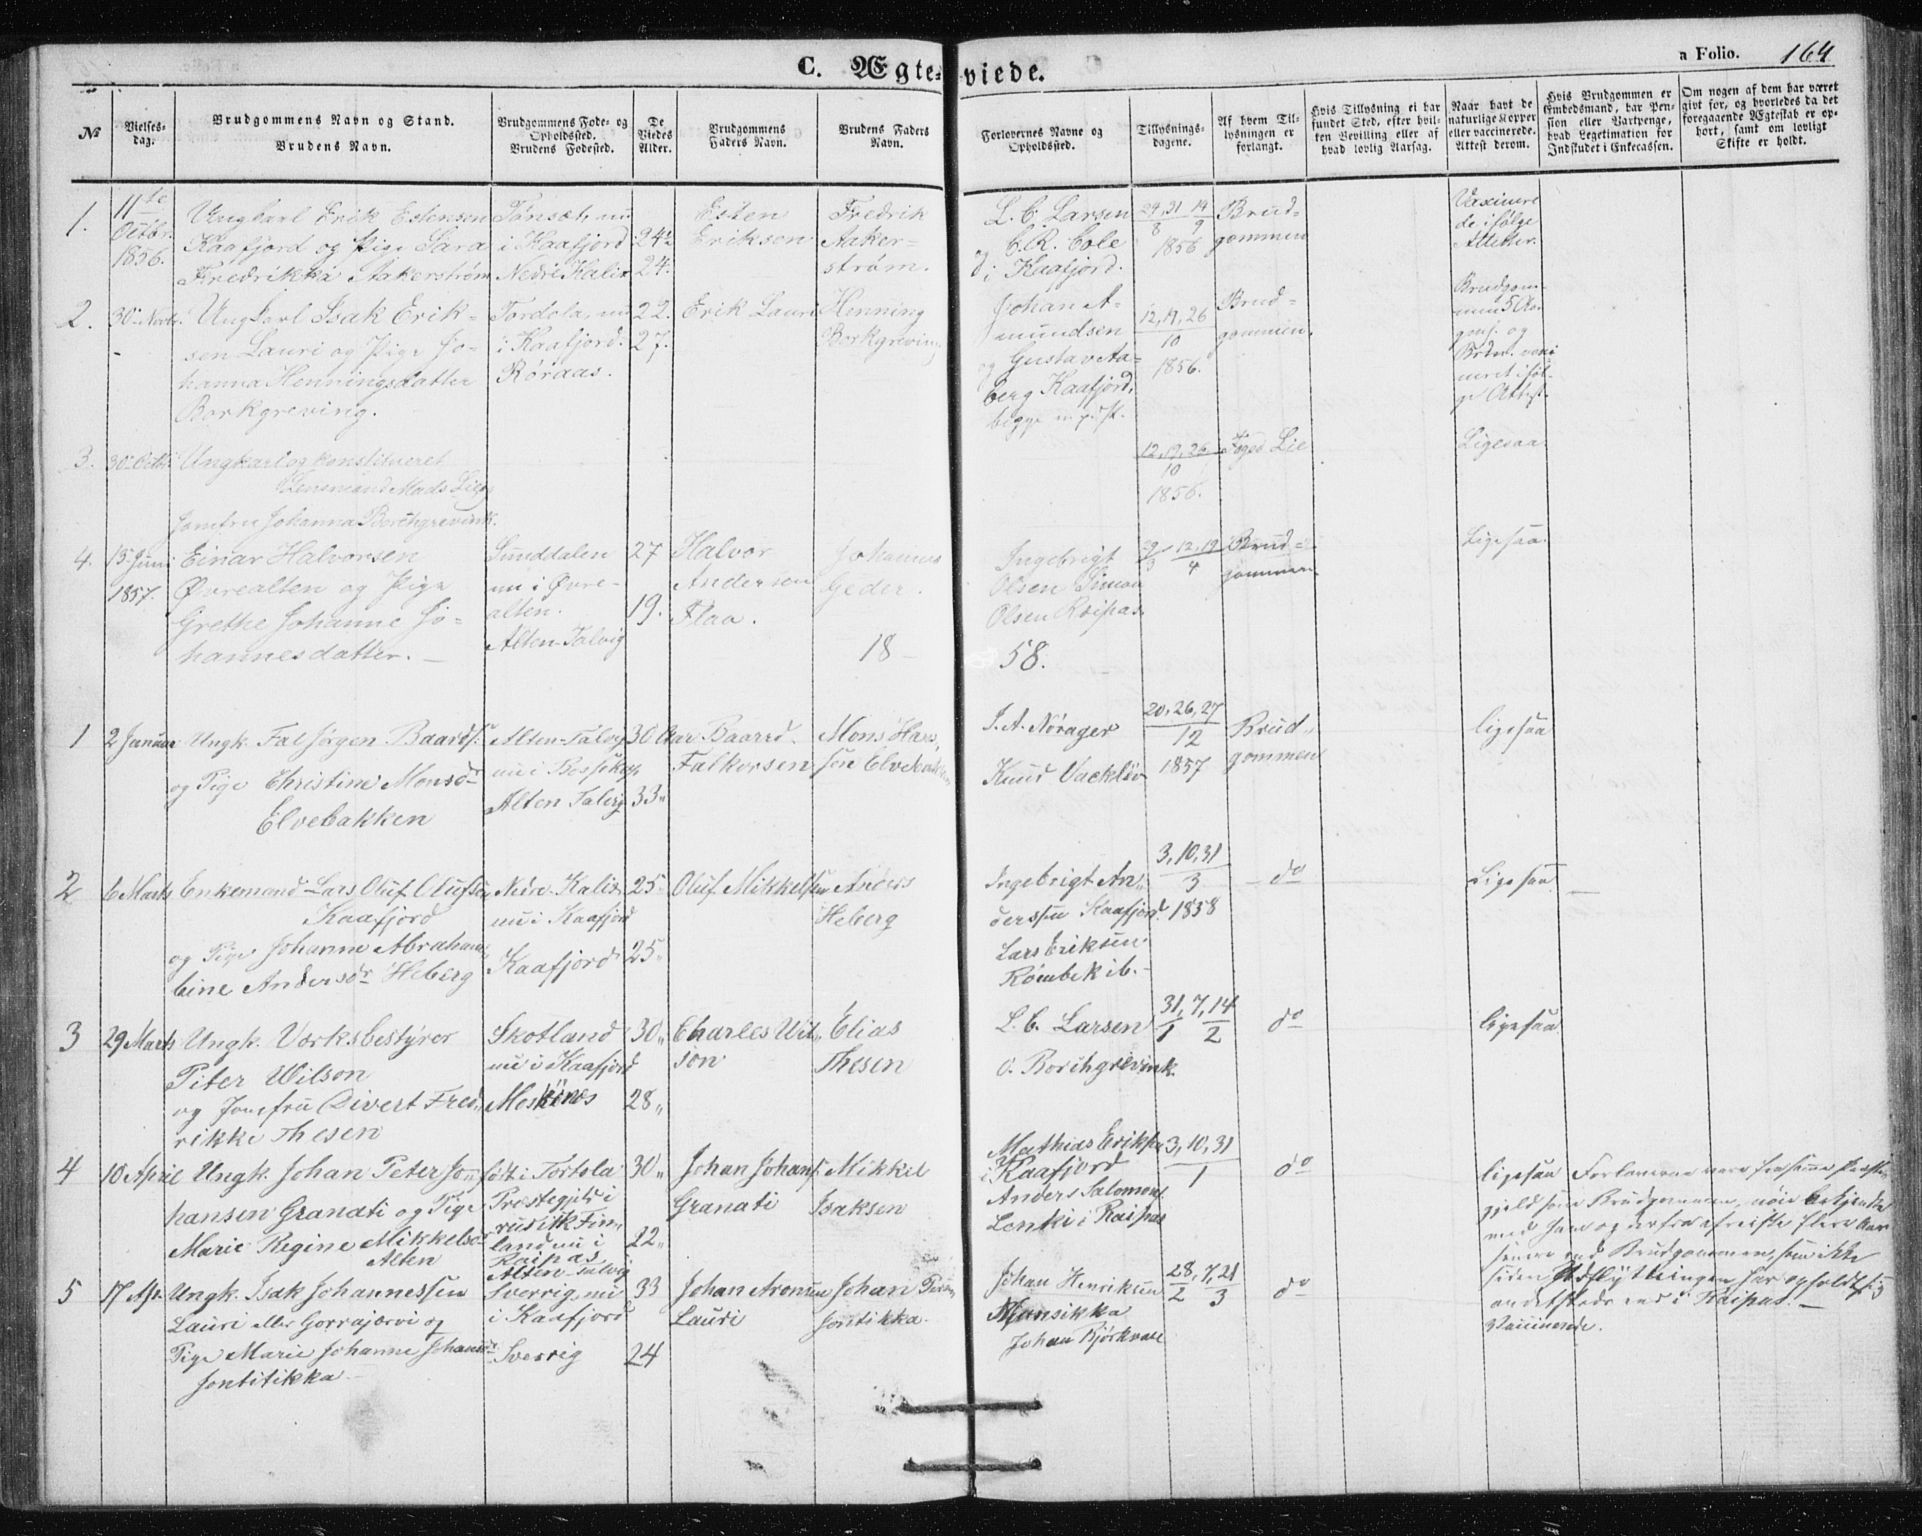 C. Ægteviede.
a Folio. 164
№
Vielses-
dag.
Brudgommens Navn og Stand.
Brudens Navn.
Brudgommens Føde- og
Opholdssted.
Brudens Fødested.
De
Viedes
Alder.
Brudgommens
Faders Navn.
Brudens Faders
Navn.
Forlovernes Navne og
Opholdssted.
Tillysnings-
dagene.
Af hvem Til-
lysningen er
forlangt.
Hvis Tillysning ei har
fundet Sted, efter hvil-
ken Bevilling eller af
hvad lovlig Aarsag.
Naar havt de
naturlige Kopper
eller vaccinerede.
Attest derom.
Hvis Brudgommen er
Embedsmand, har Pen-
sion eller Vartpenge,
hvad Legetimation for
Indskudet i Enkecassen.
Om nogen af dem har været
givt før, og hvorledes da det
foregaaende Ægteskab er op-
hørt, samt om lovligt
Skifte er holdt.
1.
11te
Octbr.
1856.
Ungkarl Erik Estensen
Kaafjord og Pige Sara
Fredrikka Aakerstrøm
Tønsæt, nu
i Kaafjord
Nedre Kalix
24
24.
Esten
Eriksen
Fredrik
Aaker-
strøm.
L. C. Larsen
C. R. Cole
i Kaafjord.
24, 31 14
8 9
1856
Brud-
gommen
Vaxinere
de ifølge
Attester.
2.
30
Ungkarl Isak Erik-
sen Lauri og Pige Jo-
hanna Henningsdatter
Borkgreving.
Tordola, nu
i Kaafjord.
Røraas.
22.
27.
Erik Lauri
Henning
Borkgreving
Johan A-
mundsen
og Gustav Aa-
berg Kaafjord,
begge
12, 19, 26
10
1856.
Brud-
gommen.
Brudgom-
men
og
ge Attest.
3.
30
Ungkarl og konstitueret
Lensmand Mads Lie
Jomfru Johanna Borchgrevink.
12, 19, 26
10
1856.
Foged Lie
Ligesaa
4.
15 Juni
1857.
Einar Halvorsen
Øvrealten og Pige
Grethe Johanne Jo-
hannesdatter.
Sunddalen
nu i Øvre-
alten.
Alten-Talvig
27
19.
Halvor
Andersen
Flaa.
Johannes
Geder.
Ingebrigt
Olsen Simon
Olsen Raipas
29 12, 19
3 4
Brud-
gommen
Ligesaa.
18
58.
1
2 Januar
Ungk. Falk Jørgen Baards.
og Pige Christine Monsd
Elvebakken
Alten-Talvig
nu i Bossekop
Alten Talvig
30 Aar
33"
Baard
Falkorsen
Mons Han-
sen Elvebakken
J. A. Norager
Knud Vackløv
20, 26, 27
12
1857
Brud-
gommen
ligesaa
2
6 Marts
Enkemand Lars Oluf Olufsen
Kaafjord
og Pige Johanne Abraham-
bine Andersdr Heberg
Nedre Kalix
nu i Kaafjord
Kaafjord
25
25"
Oluf Mikkelsen
Anders
Heberg
Ingebrigt An-
derssen Kaafjord
Lars Eriksen
Rømbek ib.
3, 10, 31
3
1858
do
Ligesaa
3
29 Marts
Ungk. Værksbestyrer
Piter Wilson
og Jomfru Divert Fred-
rikke Thesen
Skotland
nu i Kaafjord
Moskønes
30"
28"
Charles Wil-
son
Elias
Thesen
L. C. Larsen
C. Borchgrevink.
31, 7, 14
1 2
do
ligesaa
4
10 April
Ungk. Johan Peter Jon-
hansen Granati og Pige
Marie Regine Mikkelsd
Alten
født i Tortola
Præstegjeld i
russisk Fin-
land nu i
Raipas
Alten-Talvig
30"
22"
Johan Johans.
Granati
Mikkel
Isaksen
Mathias Eriksen
i Kaafjord
Anders Salomons.
Lenki i Raipas
3, 10, 31
1
do
ligesaa
Forloverne vare fra samme Præste-
gjeld som Brudgommen, nøie bekjendte
med ham og derfra afreiste flere Aar
senere end Brudgommen, som ikke
siden Udflytningen har opholdt sig
andetsteds end i Raipas.
Vaccinerede.
5
17 Apr.
Ungk. Isak Johannessen
Lauri eller Gorrajærvi og
Pige Marie Johanne Johansdr
Jontitikka
Sverrig, nu
i Kaafjord
Sverrig
33
24
Johan Aronsen
Lauri
Johan
Jontikka.
Johan Henriksen
Mansikka
Johan Bjørkvare
28, 7, 21
2 3
do